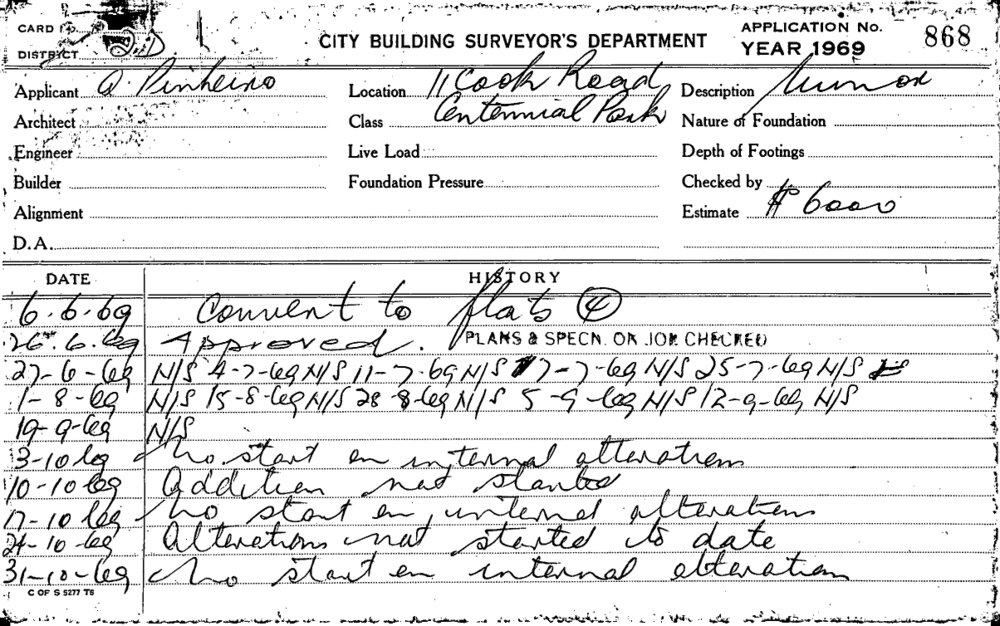 CARD 1
DISTRICT
CITY BUILDING SURVEYOR'S DEPARTMENT
APPLICATION No. 868
YEAR 1969
Applicant A Pinheiro
Location 11 Cook Road
Description
Architect
Class Centennial Park
Nature of Foundation
Engineer
Live Load
Depth of Footings
Builder
Foundation Pressure
Checked by
Alignment
Estimate $ 6000
D.A.
DATE HISTORY
6.6.69 Convert to flats (4)
26.6.69 Approved. PLANS & SPECN. ON JOB CHECKED
27-6-69 N/S 4-7-69 N/S 11-7-69 N/S 17-7-69 N/S 25-7-69 N/S
1-8-69 N/S 15-8-69 N/S 28-8-69 N/S 5-9-69 N/S 12-9-69 N/S
19-9-69 N/S
3-10 69 No start on internal alterations
10-10 69 Addition not started
17-10 69 No start on internal alterations
24-10-69 Alterations not started to date
31-10-69 No start on internal alterations
C OF S 5277 T6